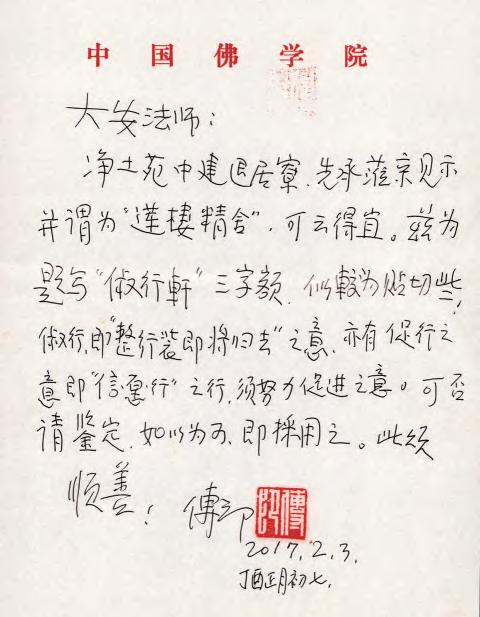 中国佛学院
大安法师：
净土苑中建退居寮，先承蓝京见示
并谓为“莲楼精舍”，可云得宜。兹为
题与“俶行軒”三字额，似較为贴切些！
俶行，即“整行装即将归去”之意，亦有促行之
意即“信愿行”之行，须努力促进之意。可否
请鉴定，如以为可，即採用之。此颂
顺善！ 傅印
2017.2.3.
丁酉正月初七，